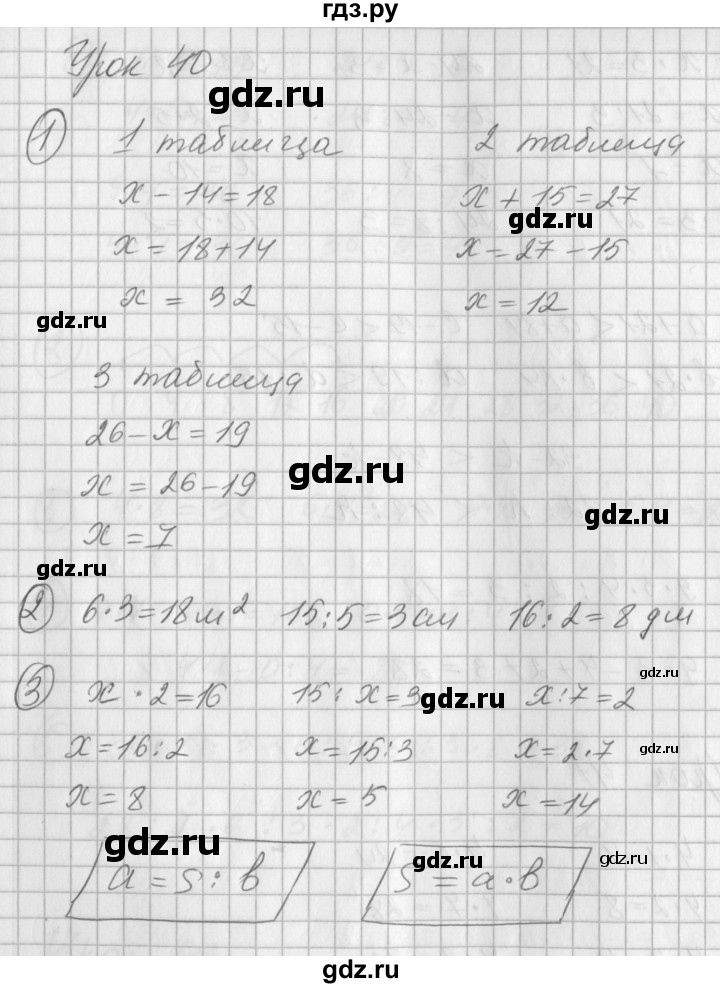 гдз.ру
Урок 40
gdz.ru
1 1 таблица 2 таблица
x - 14 = 18 x + 15 = 27
gdz.ru
x = 18 + 14 x = 27 - 15
x = 32 x = 12
gdz.ru
3 таблица
26 - x = 19
gdz.ru
x = 26 - 19
gdz.ru
x = 7
gdz.ru
2 6·3=18м² 15:5=3см 16:2=8дм
gdz.ru
3 x · 2 = 16 15 : x = 3 x : 7 = 2
gdz.ru
x = 16 : 2 x = 15 : 3 x = 2 · 7
gdz.ru
x = 8 x = 5 x = 14
gdz.ru
gdz.ru
gdz.ru
a = s : b S = a · b
gdz.ru